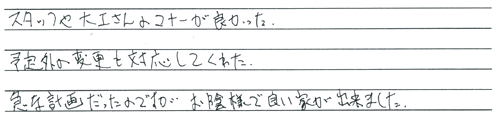 スタッフや大工さんのマナーが良かった.
予定外の変更も対応してくれた.
急な計画だったのですが お陰様で良い家が出来ました.